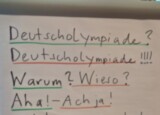 Deutscholympiade?
Deutscholympiade!!!!
Warum? Wieso?
Aha! - Ach ja!